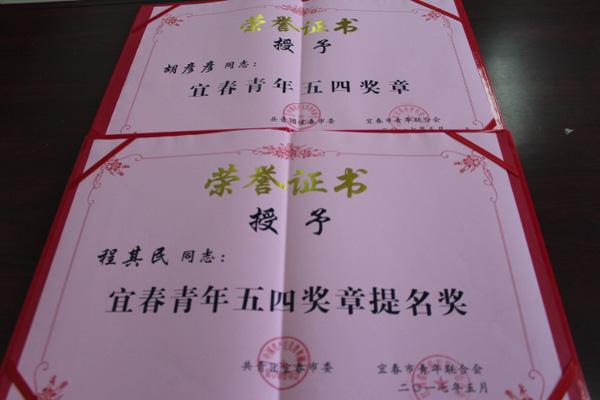 荣誉证书
授予
胡彦彦 同志：
宜春青年五四奖章
共青团宜春市委 宜春市青年联合会
二〇一七年五月
荣誉证书
授予
程其民 同志：
宜春青年五四奖章提名奖
共青团宜春市委 宜春市青年联合会
二〇一七年五月